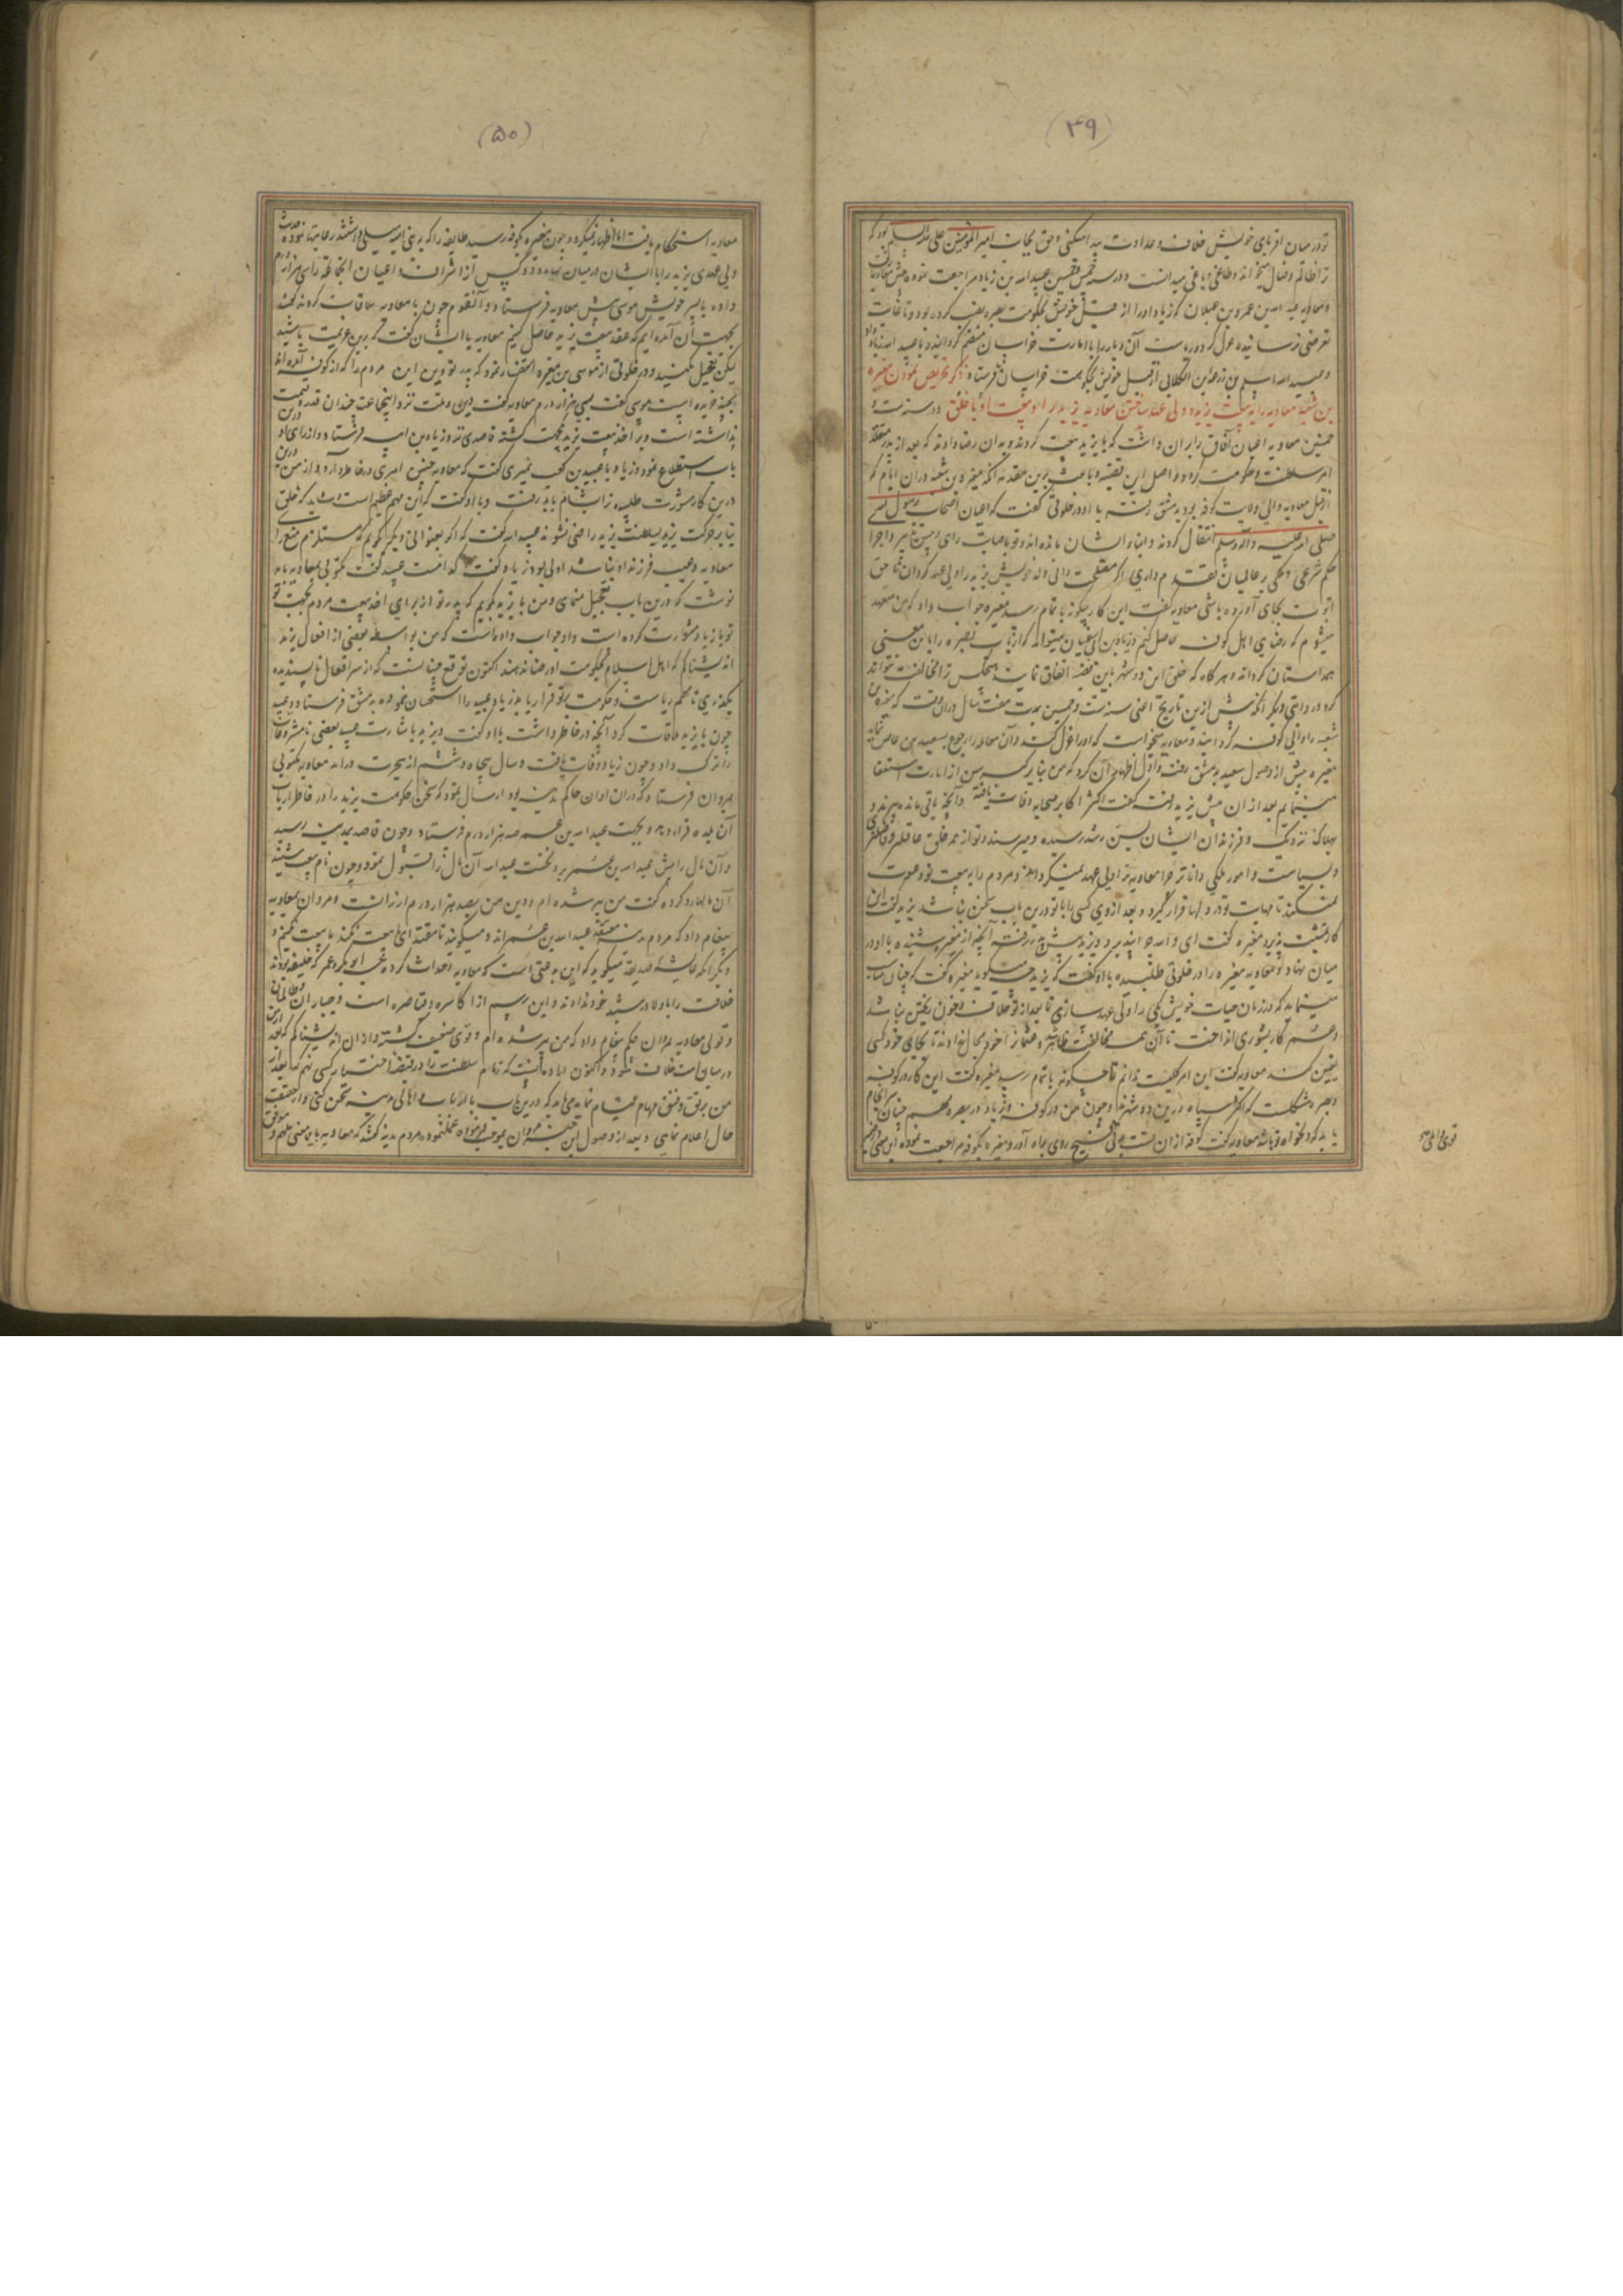 (۴۹)
تو در میان اقربای خویش خلاف و عداوت پیدا میکنی و حق بجانب امیر المؤمنین علی علیه السلام بود که
ترا ظالم و ضال میخواند و طاغی و باغی میدانست و در سنه خمس و خمسین عبید الله بن زیاد مراجعت نموده پیش معاویه رفت
و معاویه عبد الله بن عمرو بن غیلان که زیاد او را از قبل خویش بحکومت بصره نصب کرده بود
عزل کرد و ریاست آن دیار را با امارت خراسان منضم گردانیده با عبید الله زیاد داد
و عبید الله اسلم بن زرعه الکلابی از قبل خویش بحکومت خراسان فرستاد ذکر تحریص نمودن مغیره
بن شعبه معاویه را به بیعت یزید و ولی عهد ساختن معاویه یزید را و بیعت او با خلق در سنه ست و
خمسین معاویه اعیان آفاق را بران داشت که با یزید بیعت کردند و بدان رضا دادند که بعد از پدر متقلد
امر سلطنت و حکومت گردد و اصل این قضیه و باعث برین عقد نه آنکه مغیره بن شعبه در آن ایام که
از قبل معاویه والی ولایت کوفه بود بدمشق رفته با او در خلوتی گفت که اعیان اصحاب رسول
صلی الله علیه و آله وسلم انتقال کردند و ابناء ایشان مانده‌اند و تو باصابت رای
حکم شرعی و ملکی بر عالمیان تقدم داری اگر مصلحت دانی ولد خویش یزید را ولی عهد گردان تا حق
ابوت بجای آورده باشی معاویه گفت این کار چگونه باتمام رسد مغیره جواب داد که من متعهد
میشوم که رضای اهل کوفه حاصل کنم و زیاد بن ابی سفیان میتواند که ارباب بصره را باین معنی
همداستان گرداند و هرگاه که خلق این دو شهر باین قضیه اتفاق نمایند هیچکس ترا مخالفت نتواند
کرد و روایتی دیگر آنکه پیش ازین تاریخ اعنی سنه ست و خمسین بمدت هفت سال دران وقت که مغیره بن
شعبه والی کوفه گردانیده معاویه میخواست که او را عزل کند و آن مهم را رجوع بسعید بن عاص نماید
مغیره پیش از وصول سعید بدمشق رفت و اول اظهار آن کرد که من بنا بر کبر سن از امارت استعفا
مینمایم بعد از ان پیش یزید رفته گفت اکثر اکابر صحابه وفات یافته و آنچه باقی مانده پیرند و
بهلاک نزدیک و فرزندان ایشان بسن رشد رسیده و میرسند و تو از همه خلق عاقلتر و فاضلتری
و بسیاست و امور ملکی داناتر چرا معاویه ترا ولی عهد نمیگرداند و مردم را به بیعت تو دعوت
نمیکند تا مهابت تو در دلها قرار گیرد و بعد از وی کسی را با تو درین باب سخن نباشد یزید گفت این
کار تمشیت پذیرد مغیره گفت ای والله چرا نپذیرد و یزید پیش پدر رفته آنچه از مغیره شنیده با او در
میان نهاد و معاویه مغیره را در خلوتی طلبیده با او گفت که یزید چه میگوید مغیره گفت که چنان مناسب
مینماید که در زمان حیات خویش یکی را ولی عهد سازی تا بعد از تو خلاف و خون ریختن نباشد
و عمر کار بشوری انداخت تا آن همه مخالفت ظاهر شد و عثمان را خود مجال ندادند تا بجای خود کسی
تعیین کند معاویه گفت این امر کلیست ندانم تا چگونه باتمام رسد مغیره گفت این کار در کوفه
و بصره مشکلست که اکثر سپاه درین دو شهرند و چون من در کوفه و زیاد در بصره مهم چنان سرانجام
یابد که دلخواه تو باشد معاویه گفت کوفه از ان تست روی براه آورد و مغیره بکوفه مراجعت نموده این معنی در ضمیر
(۵۰)
معاویه استحکام یافت اما اظهار نمیکرد و چون مغیره بکوفه رسید طایفه را که به بنی امیه میلی داشتند رعایتها نموده حدیث
ولی عهدی یزید را با ایشان در میان نهاد و ده کس از اشراف و اعیان آنجا را سی هزار درم
داده با پسر خویش موسی پیش معاویه فرستاد و آن قوم چون با معاویه ملاقات کردند گفتند
بجهت آن آمده‌ایم که عقد بیعت یزید حاصل کنیم معاویه با ایشان گفت که برین عزیمت باشید
لیکن تعجیل نکنید و در خلوتی از موسی بن مغیره استفسار نمود که پدر تو دین این مردم را که از کوفه آمده‌اند
بچند خریده است موسی گفت بسی هزار درم معاویه گفت دین و ملت نزد اینجماعت چندان قدر و قیمت
نداشته است و بر اخذ بیعت یزید بجهت گشته قاصدی نزد زیاد بن ابیه فرستاد و از رای او درین
باب استطلاع نمود و زیاد با عبید بن کعب نمیری گفت که معاویه چنین امری در خاطر دارد و از من درین
درین کار مشورت طلبیده ترا بشام باید رفت و با او گفت که این مهم عظیم است شاید که خلق
بنا بر حرکت یزید بسلطنت یزید راضی نشوند عبید الله گفت که اگر بعنوانی دیگر گویم که مستلزم منع رای
معاویه و عیب فرزند او نباشد اولی بود زیاد گفت که کدامست عبید گفت مکتوبی بمعاویه باید
نوشت که درین باب تعجیل ننمای و من با یزید گویم که پدر تو از برای اخذ بیعت مردم بجهت تو
تو با زیاد مشورت کرده است و او جواب داده است که من بواسطه بعضی از افعال یزید
اندیشناکم که اهل اسلام بحکومت او رضا ندهند اکنون توقع چنانست که از سر افعال ناپسندیده
بگذری تا مهم ریاست و حکومت بر تو قرار یابد زیاد عبید را استحسان نموده بدمشق فرستاد و عبید
چون با یزید ملاقات کرد آنچه در خاطر داشت با او گفت و یزید باشارت عبید بعضی نامشروعات
را ترک داد و چون زیاد وفات یافت و سال پنجاه و ششم از هجرت درآمد معاویه مکتوبی
بمروان فرستاد که دران اوان حاکم مدینه بود ارسال نمود که سخن حکومت یزید را در خاطر ارباب
آن بلده قرار دهد و بجهت عبد الله بن عمر صد هزار درم فرستاد و چون قاصد بمدینه رسید
و آن مال را پیش عبد الله بن عمر برد نخست عبد الله آن مال را قبول نمود و چون نام بیعت شنید
آن مال را رد کرده گفت من پیر شده‌ام و دین من بصد هزار درم ارزانست و مروان بمعاویه
پیغام داد که مردم مدینه معتقد عبد الله بن عمراند و میگویند تا مقتدای بیعت نکند ما بیعت نکنیم و
دیگر آنکه عایشه صدیقه میگوید که این بدعتی است که معاویه احداث کرده چه ابو بکر و عمر که خلیفه بودند
خلافت را باولاد رشید خود ندادند و این رسم از اکاسره و قیاصره است و جباران و ظالمان
و قولی معاویه بمروان حکم پیغام داد که من پیر شده‌ام و قوی ضعیف گشته و از ان اندیشناکم که بعد از من
در میان امت خلاف شود و اکنون اراده آنست که زمام سلطنت را در قبضه اختیار کسی نهم که بعد از
من برتق و فتق مهام قیام نماید می‌باید که درین باب با ارباب و اهالی مدینه سخن کنی و از حقیقت
حال اعلام نمایی و بعد از وصول این خبر مروان بموجب فرموده عمل نموده مردم مدینه گفتند که معاویه باین معنی ملهم و موفق